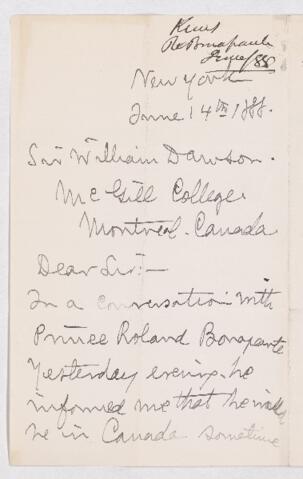 Kunz
Re Bonaparte
June/88
New York
June 14th 1888.
Sir William Dawson.
McGill College
Montreal. Canada
Dear Sir:—
In a conversation with
Prince Roland Bonaparte
Yesterday evening he
informed me that he will
be in Canada sometime